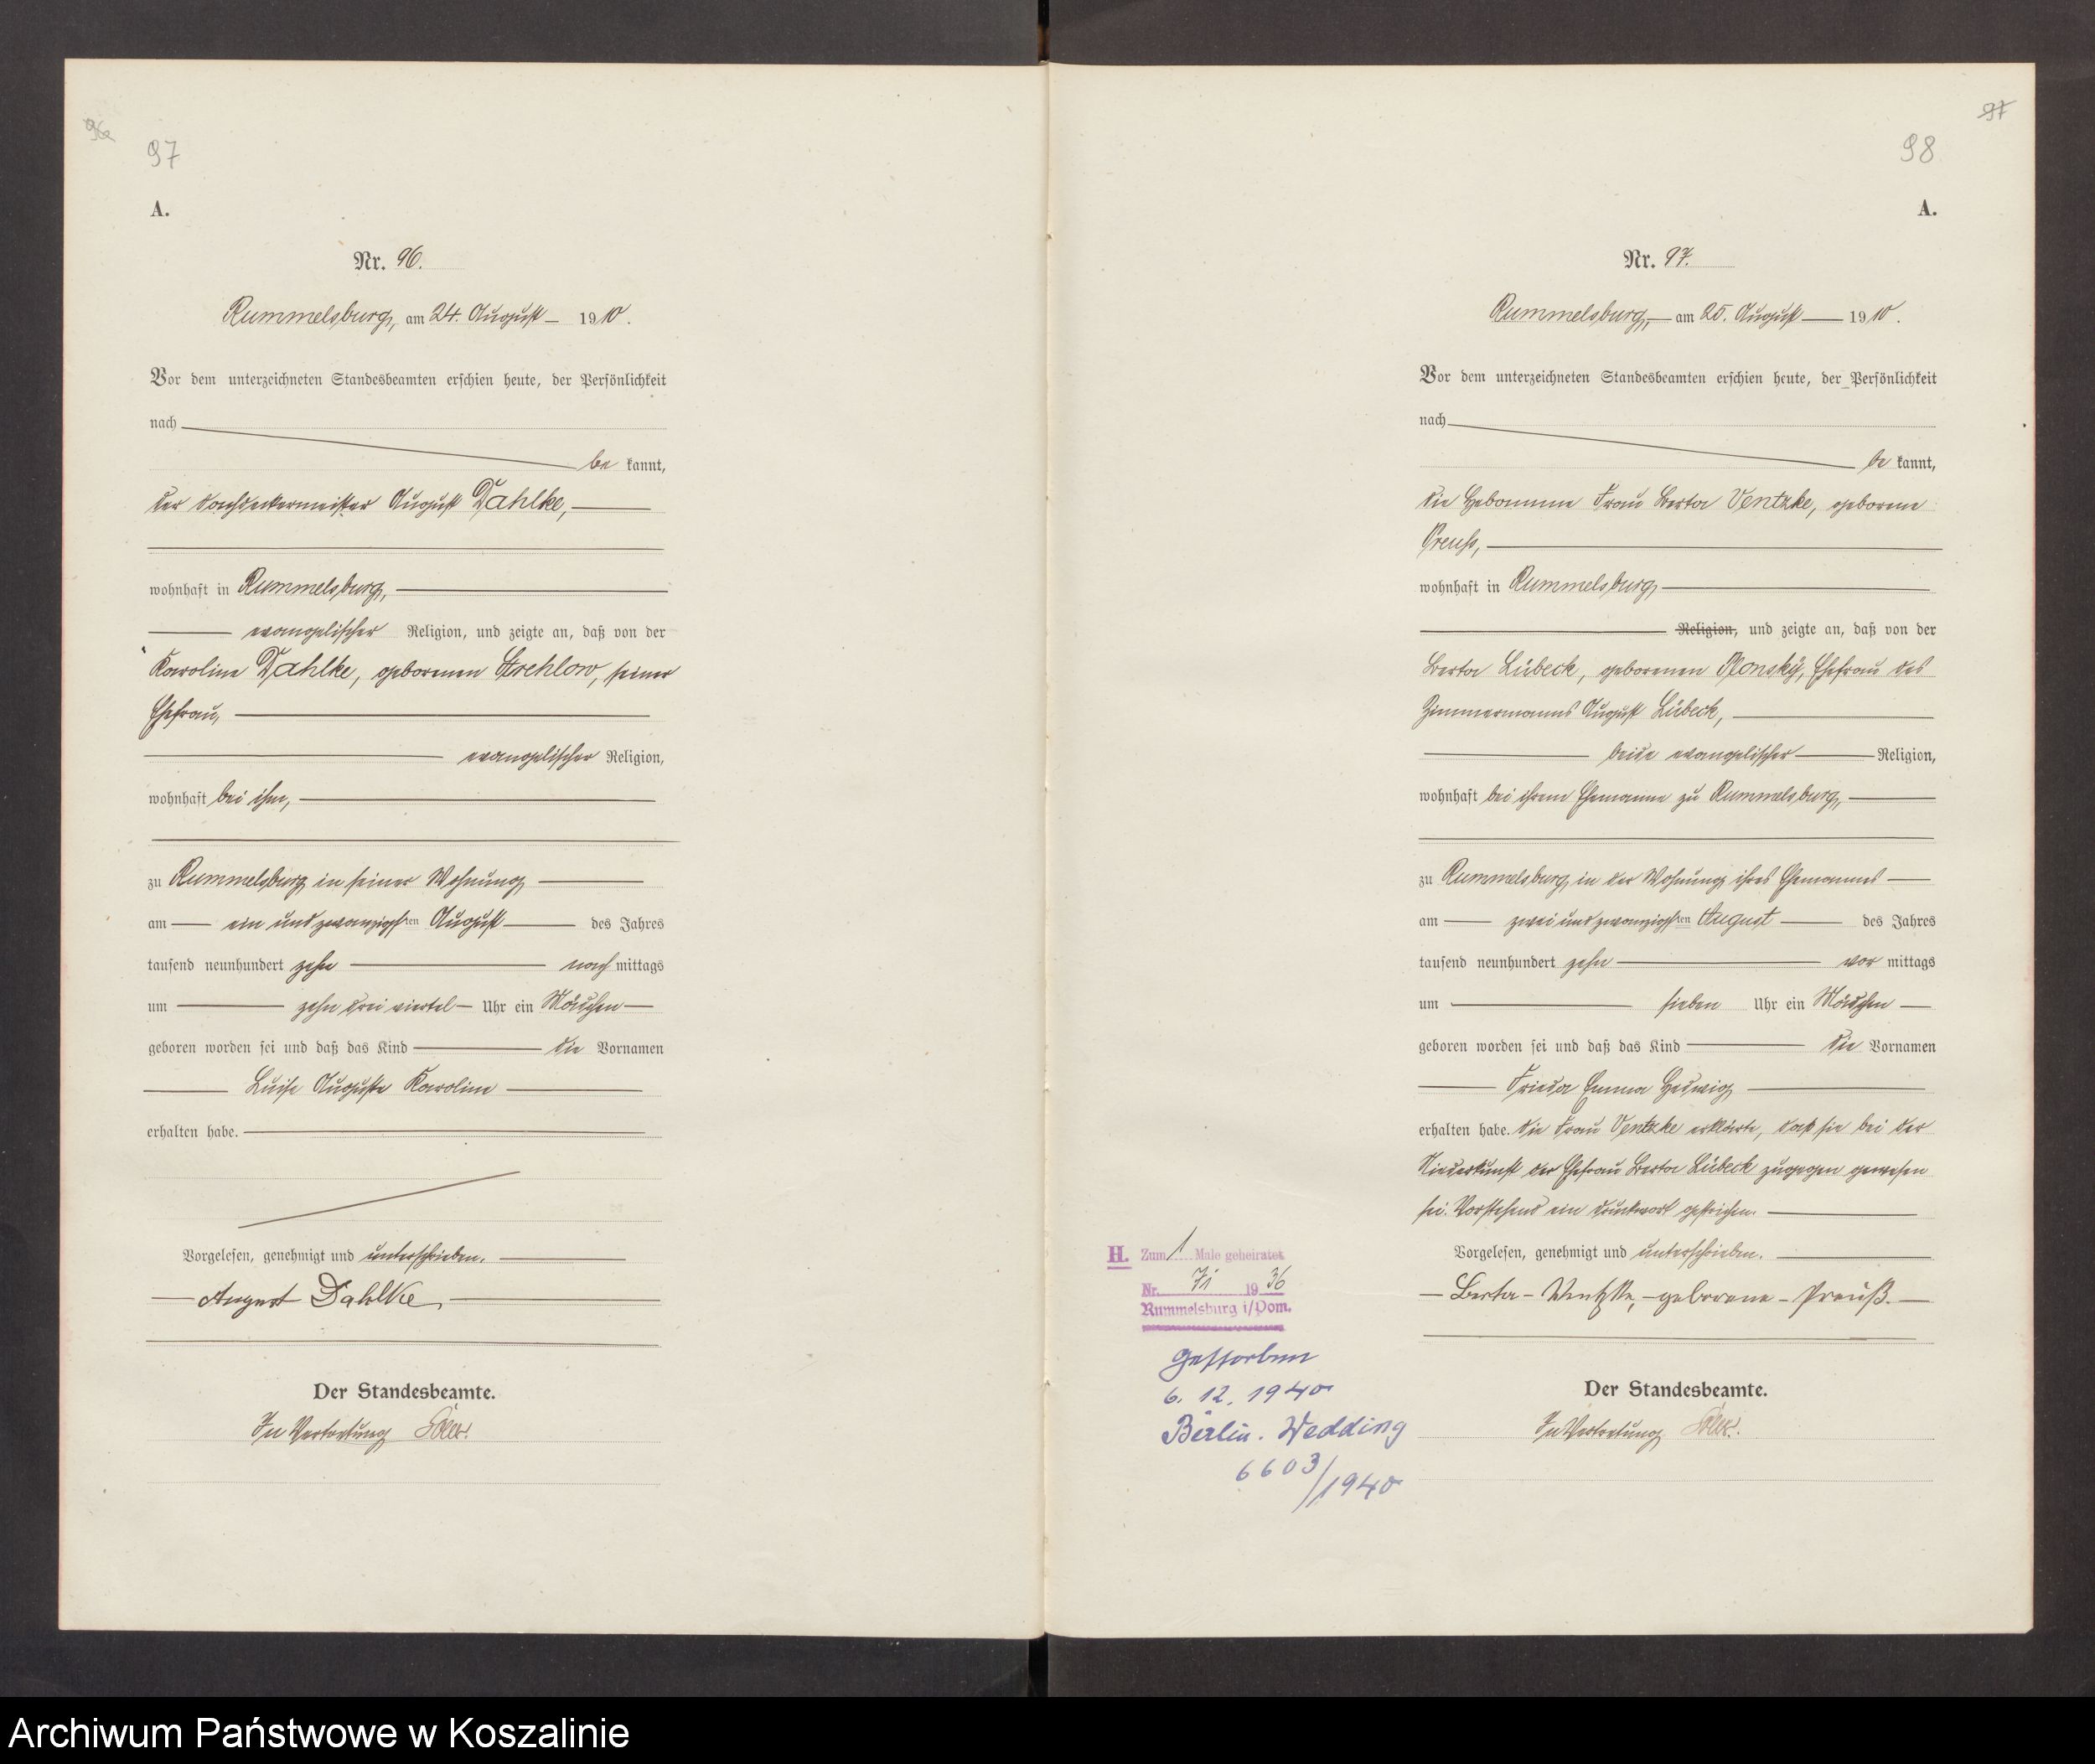 96
97
A.
Nr. 96.
Rummelsburg, am 24. August 1910.
Vor dem unterzeichneten Standesbeamten erschien heute, der Persönlichkeit
nach
be kannt,
der Dachdeckermeister August Dahlke,
wohnhaft in Rummelsburg,
evangelischer Religion, und zeigte an, daß von der
Karoline Dahlke, geborenen Strehlow, seiner
Ehefrau,
evangelischer Religion,
wohnhaft bei ihm,
zu Rummelsburg in seiner Wohnung
am ein und zwanzigsten August des Jahres
tausend neunhundert zehn nach mittags
um zehn drei viertel Uhr ein Mädchen
geboren worden sei und daß das Kind die Vornamen
Luise Auguste Karoline
erhalten habe.
Vorgelesen, genehmigt und unterschrieben.
August Dahlke
Der Standesbeamte.
In Vertretung
97
98
A.
Nr. 97.
Rummelsburg, am 25. August 1910.
Vor dem unterzeichneten Standesbeamten erschien heute, der Persönlichkeit
nach
be kannt,
die Hebamme Frau Berta Ventzke, geborene
Preuß,
wohnhaft in Rummelsburg
Religion, und zeigte an, daß von der
Berta Lübeck, geborenen Plonsky, Ehefrau des
Zimmermanns August Lübeck,
beide evangelischer Religion,
wohnhaft bei ihrem Ehemanne zu Rummelsburg,
zu Rummelsburg, in der Wohnung ihres Ehemannes
am zwei und zwanzigsten August des Jahres
tausend neunhundert zehn vor mittags
um sieben Uhr ein Mädchen
geboren worden sei und daß das Kind die Vornamen
Frieda Emma Hedwig
erhalten habe. Die Frau Ventzke erklärte, daß sie bei der
Niederkunft der Ehefrau Berta Lübeck zugegen gewesen
sei. Vorstehend ein Druckwort gestrichen.
Vorgelesen, genehmigt und unterschrieben.
Berta - Ventzke, - geborene - Preuß.
Der Standesbeamte.
In Vertretung
H. Zum 1 Male geheiratet
Nr. 71 1936
Rummelsburg i/Pom.
gestorben
6. 12. 1940
Berlin. Wedding
6603/1940
Archiwum Państwowe w Koszalinie